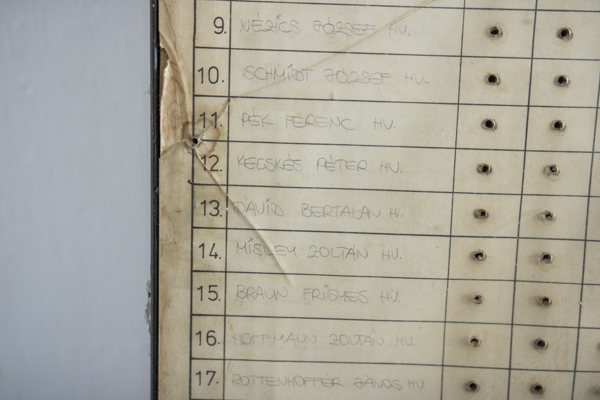 9. NÉZICS JÓZSEF HV.
10. SCHMIDT JÓZSEF HV.
11. PÉK FERENC HV.
12. KECSKÉS PÉTER HV.
13. DAVID BERTALAN H.
14. MISLEY ZOLTÁN HV.
15. BRAUN FRIGYES HV.
16. HOFFMANN ZOLTÁN HV.
17. ROTTENHOFFER JÁNOS HV.